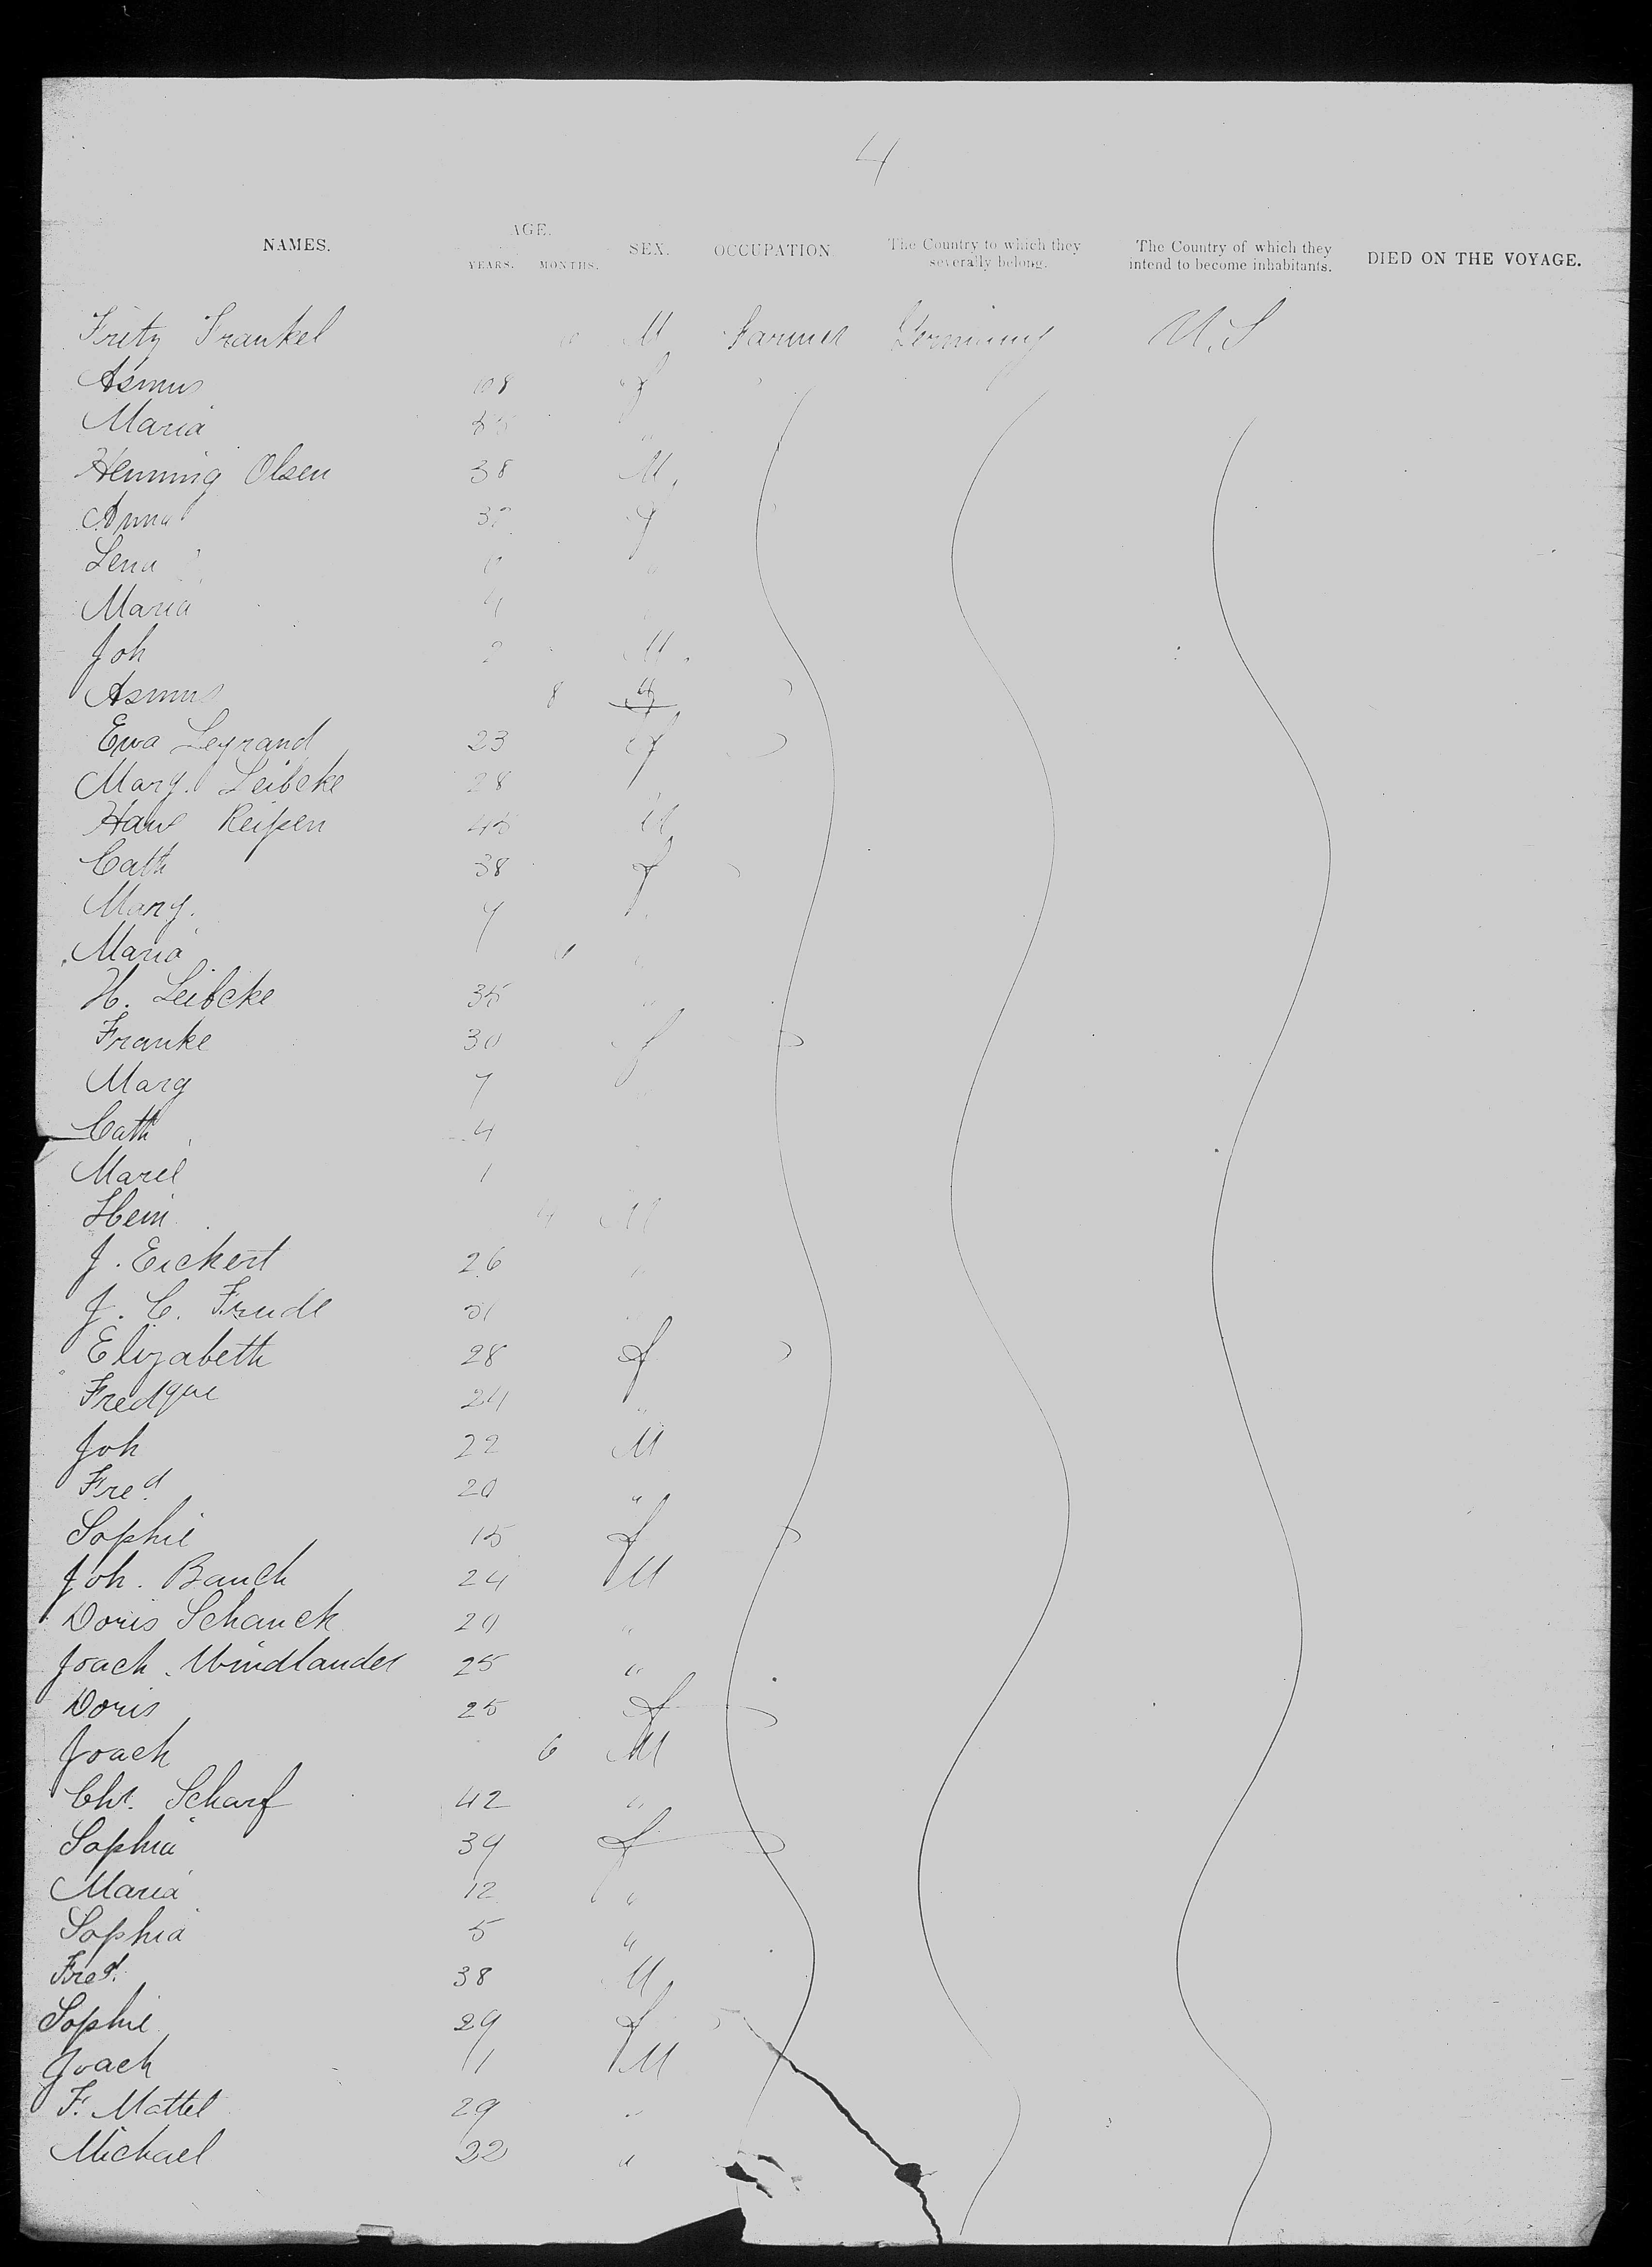 4
NAMES. AGE. YEARS. MONTHS. SEX. OCCUPATION The Country to which they severally belong. The Country of which they intend to become inhabitants. DIED ON THE VOYAGE.
Fritz Frankel M Farmer Germany U.S
Asmus f
Maria "
Henning Olsen 38 M
Anna f
Lena "
Maria 4
Joh 2 M.
Asmus 8
Ewa Legrand 23 f
Marg. Leibcke 28
Hans Reißen 45 M
Cath 38 f
Marg. 7
Maria "
H. Leibcke 35 "
Franke 30 f
Marg 7
Cath 4
Marel 1
Hein 4 M
J. Eickert 26 "
J. C. Frude 31
Elizabeth 28 f
Fredque 24 "
Joh 22 M
Fred 20 "
Sophie 15 f
Joh. Bauch 24 M
Doris Schanck 20 "
Joach. Windlander 25 "
Doris 25 f
Joach 6 M
Chr. Scharf 42 "
Sophia 39 f
Maria 12 "
Sophia 5 "
Fred. 38 M
Sophie 29 f
Joach 1 M
F. Mattel 29 "
Michael 22 "